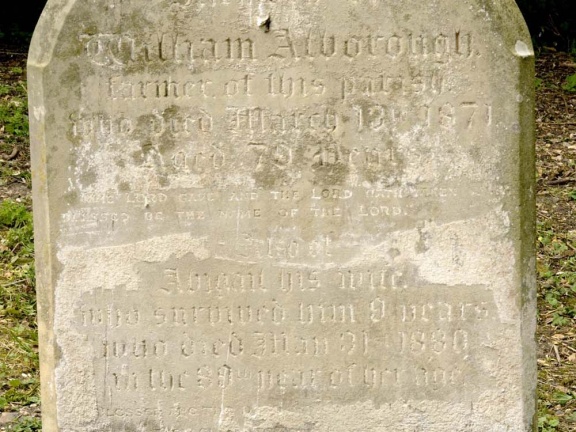 William Alborough
farmer of this parish
who died March 13th 1871
Aged 79 Years
THE LORD GAVE AND THE LORD HATH
BLESSED BE THE NAME OF THE LORD.
Also of
Abigail his wife
who survived him 9 years
who died May 31st 1880
in the 89th year of her age
BLESSED